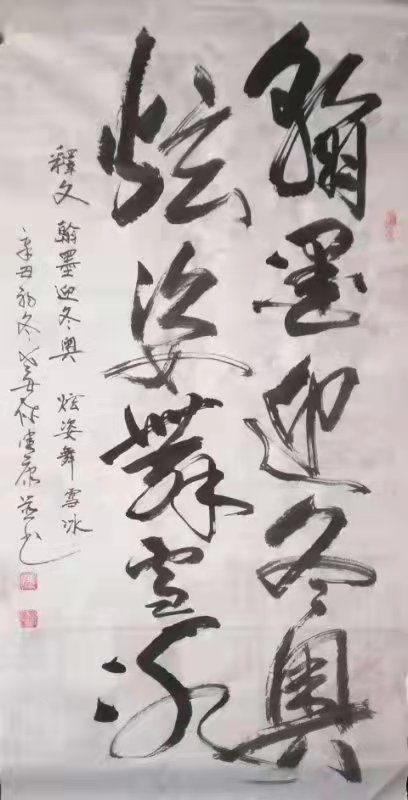 翰墨迎冬奥
炫姿舞雪冰
釋文 翰墨迎冬奥 炫姿舞雪冰
辛丑初冬